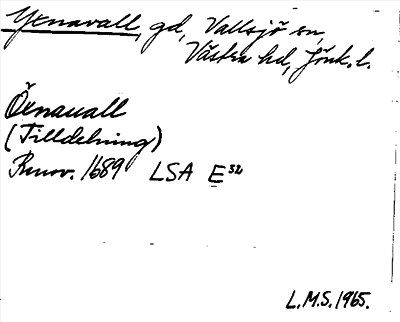 Yxnavall, gd, Vallsjö sn,
Västra hd, Jönk. l.
Öxnauall
(Tilldelning)
Renov. 1689 LSA E 32
L.M.S. 1965.